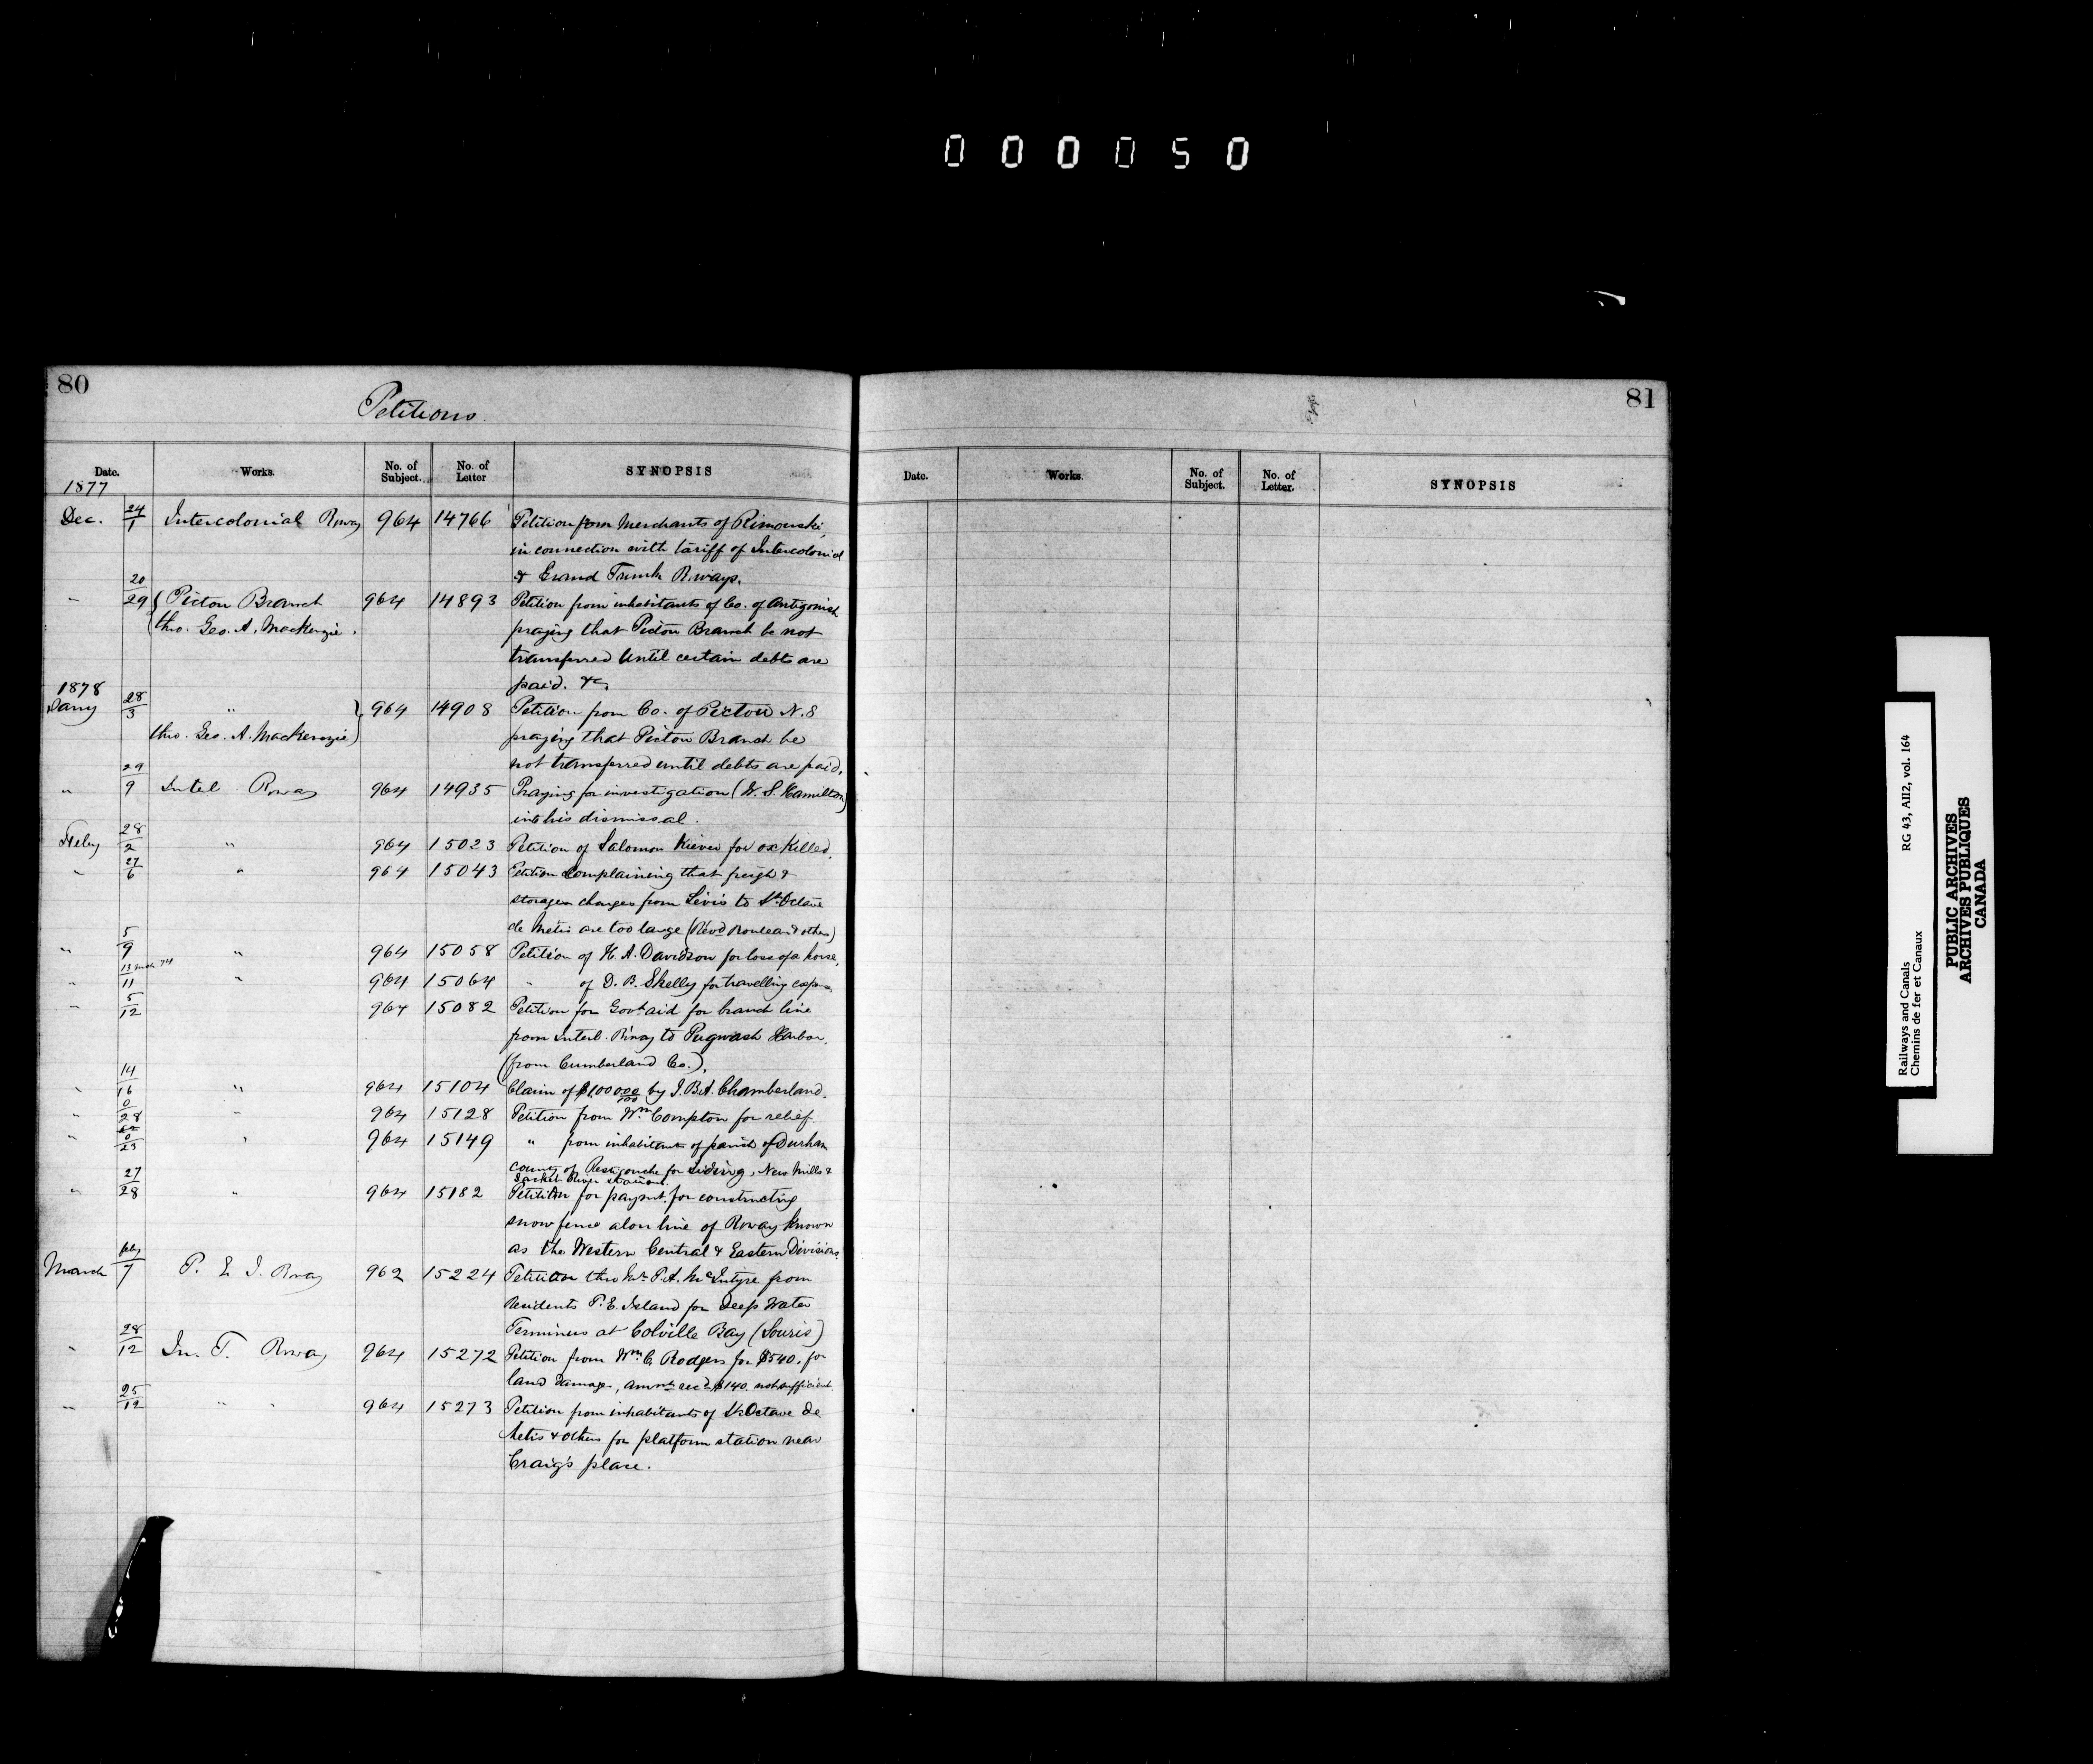 000050
80
Petitions.
Date. Works. No. of Subject. No. of Letter SYNOPSIS
1877
Dec. 24/1 Intercolonial Rway 964 14766 Petition from Merchants of Rimouski
in connection with tariff of Intercolonial
& Grand Trunk R.ways.
" 20/29 { Pictou Branch 964 14893 Petition from inhabitants of Co. of Antigonish
thro. Geo. A. MacKenzie. praying that Pictou Branch be not
transferred until certain debts are
paid. &c.
1878
Jany 28/3 " } 964 14908 Petition from Co. of Pictou N.S
thro. Geo. A. MacKenzie praying that Pictou Branch be
not transferred until debts are paid.
" 29/9 Intel Rway 964 14935 Praying for investigation (W. S. Hamilton)
into his dismissal.
Feby 28/2 " 964 15023 Petition of Salomon for ox killed.
" 27/6 " 964 15043 Petition complaining that freight &
storage charges from Levis to St. Octave
de Metis are too large (Revd Rouleau & others)
" 5/9 " 964 15058 Petition of H. A. Davidson for loss of a horse.
" 13 Mch 74/11 " 964 15064 " of D. B. Skelly for travelling expenses.
" 5/12 964 15082 Petition for Govt aid for branch line
from Interl. R'way to Pugwash Harbor.
(from Cumberland Co.).
" 14/16 " 964 15104 Claim of by J. Bte Chamberland.
" 0/28 " 964 15128 Petition from Wm Compton for relief.
" 0/25 " 964 15149 " from inhabitants of parish of Durham
county of Restigouche for siding, New Mills &
Jacket River stations.
" 27/28 " 964 15182 Petition for paymt. for constructing
snow fence alon line of Rway known
as the Western Central & Eastern Divisions.
March feby/7 P. E. I. Rway 962 15224 Petition thro Mr P. A. McIntyre from
Residents P. E. Island for Deep Water
Terminus at Colville Bay (Souris)
" 28/12 In. T. Rway 964 15272 Petition from Wm C. Rodgers for $540. for
land damages, amnt recd $140. not sufficient.
" 25/12 " " 964 15273 Petition from inhabitants of St. Octave de
Metis & others for platform station near
Craig's place.
81
Date. Works. No. of Subject. No. of Letter. SYNOPSIS
Railways and Canals RG 43, AII2, vol. 164
Chemins de fer et Canaux
PUBLIC ARCHIVES
ARCHIVES PUBLIQUES
CANADA